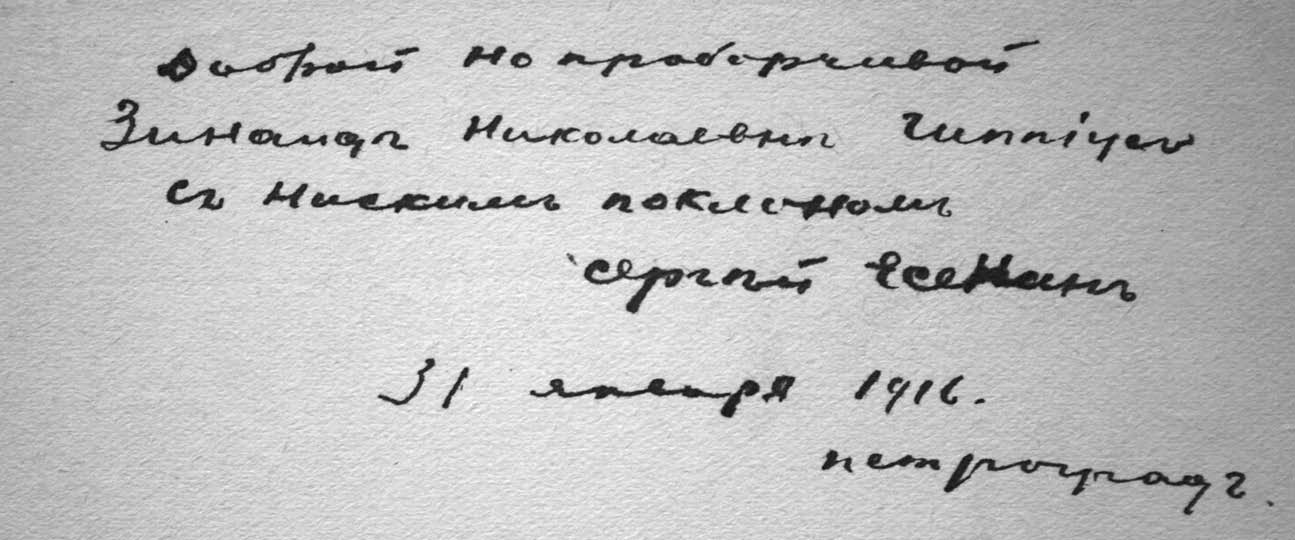 Доброй но проборчивой
Зинаидѣ Николаевнѣ Гиппiусъ
съ ниским поклономъ
Сергѣй Есенинъ
31 января 1916.
петроградъ.